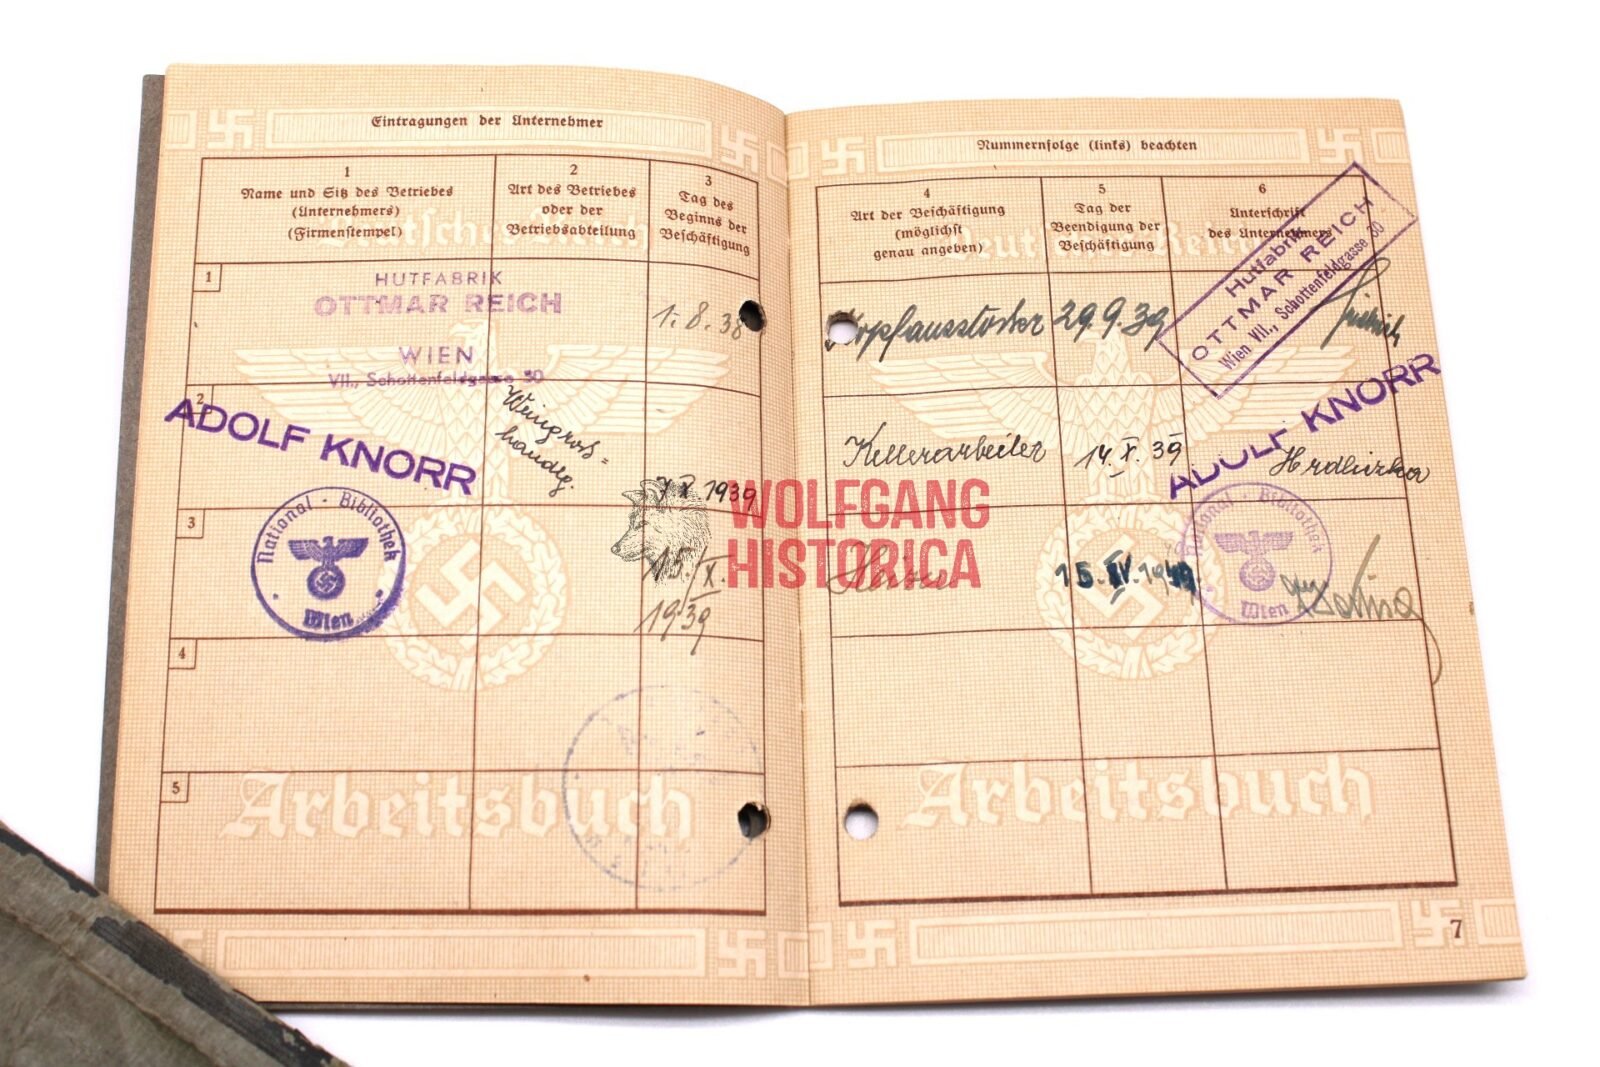 Eintragungen der Unternehmer
1
Name und Sitz des Betriebes
(Unternehmers)
(Firmenstempel)
2
Art des Betriebes
oder der
Betriebsabteilung
3
Tag des
Beginns der
Beschäftigung
1
HUTFABRIK
OTTMAR REICH
WIEN
VII., Schottenfeldgasse 30
1. 8. 38
2
ADOLF KNORR
Weingroß=
handlg.
7 X 1939
3
National-Bibliothek
Wien
15. X.
1939
4
5
Deutsches Reich
Arbeitsbuch
Nummernfolge (links) beachten
4
Art der Beschäftigung
(möglichst
genau angeben)
5
Tag der
Beendigung der
Beschäftigung
6
Unterschrift
des Unternehmers
29.9.39
Hutfabrik
OTTMAR REICH
Wien VII., Schottenfeldgasse 30
Kellerarbeiter
14. X. 39
ADOLF KNORR
Hrdlizka
Heizer
15. IV. 1940
National-Bibliothek
Wien
Deutsches Reich
Arbeitsbuch
7
WOLFGANG
HISTORICA